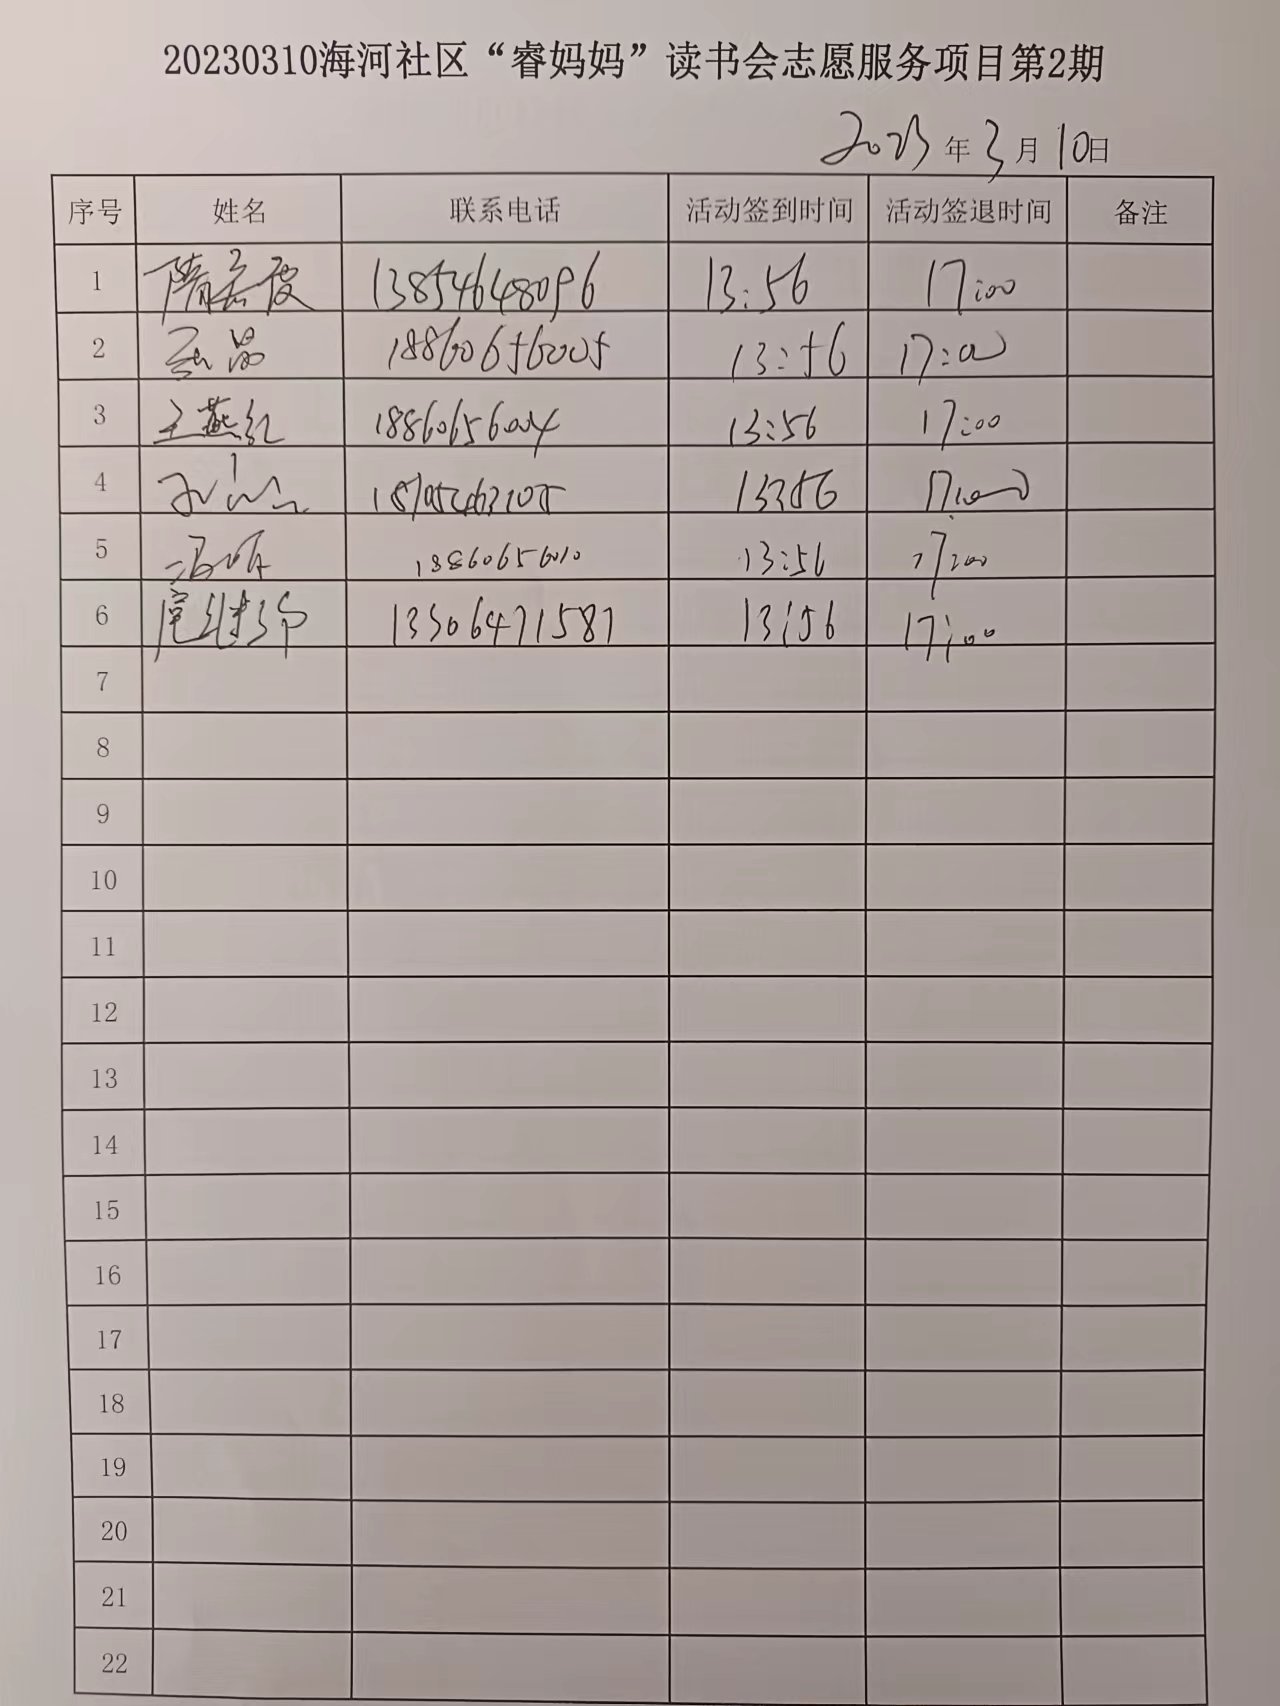 20230310海河社区“睿妈妈”读书会志愿服务项目第2期
2023年3月10日
序号 姓名 联系电话 活动签到时间 活动签退时间 备注
1 隋 13854648096 13:56 17:00
2 18860656005 13:56 17:00
3 王燕红 18860656004 13:56 17:00
4 13:56 17:00
5 冯 18860656010 13:56 17:00
6 13306471587 13:56 17:00
7
8
9
10
11
12
13
14
15
16
17
18
19
20
21
22